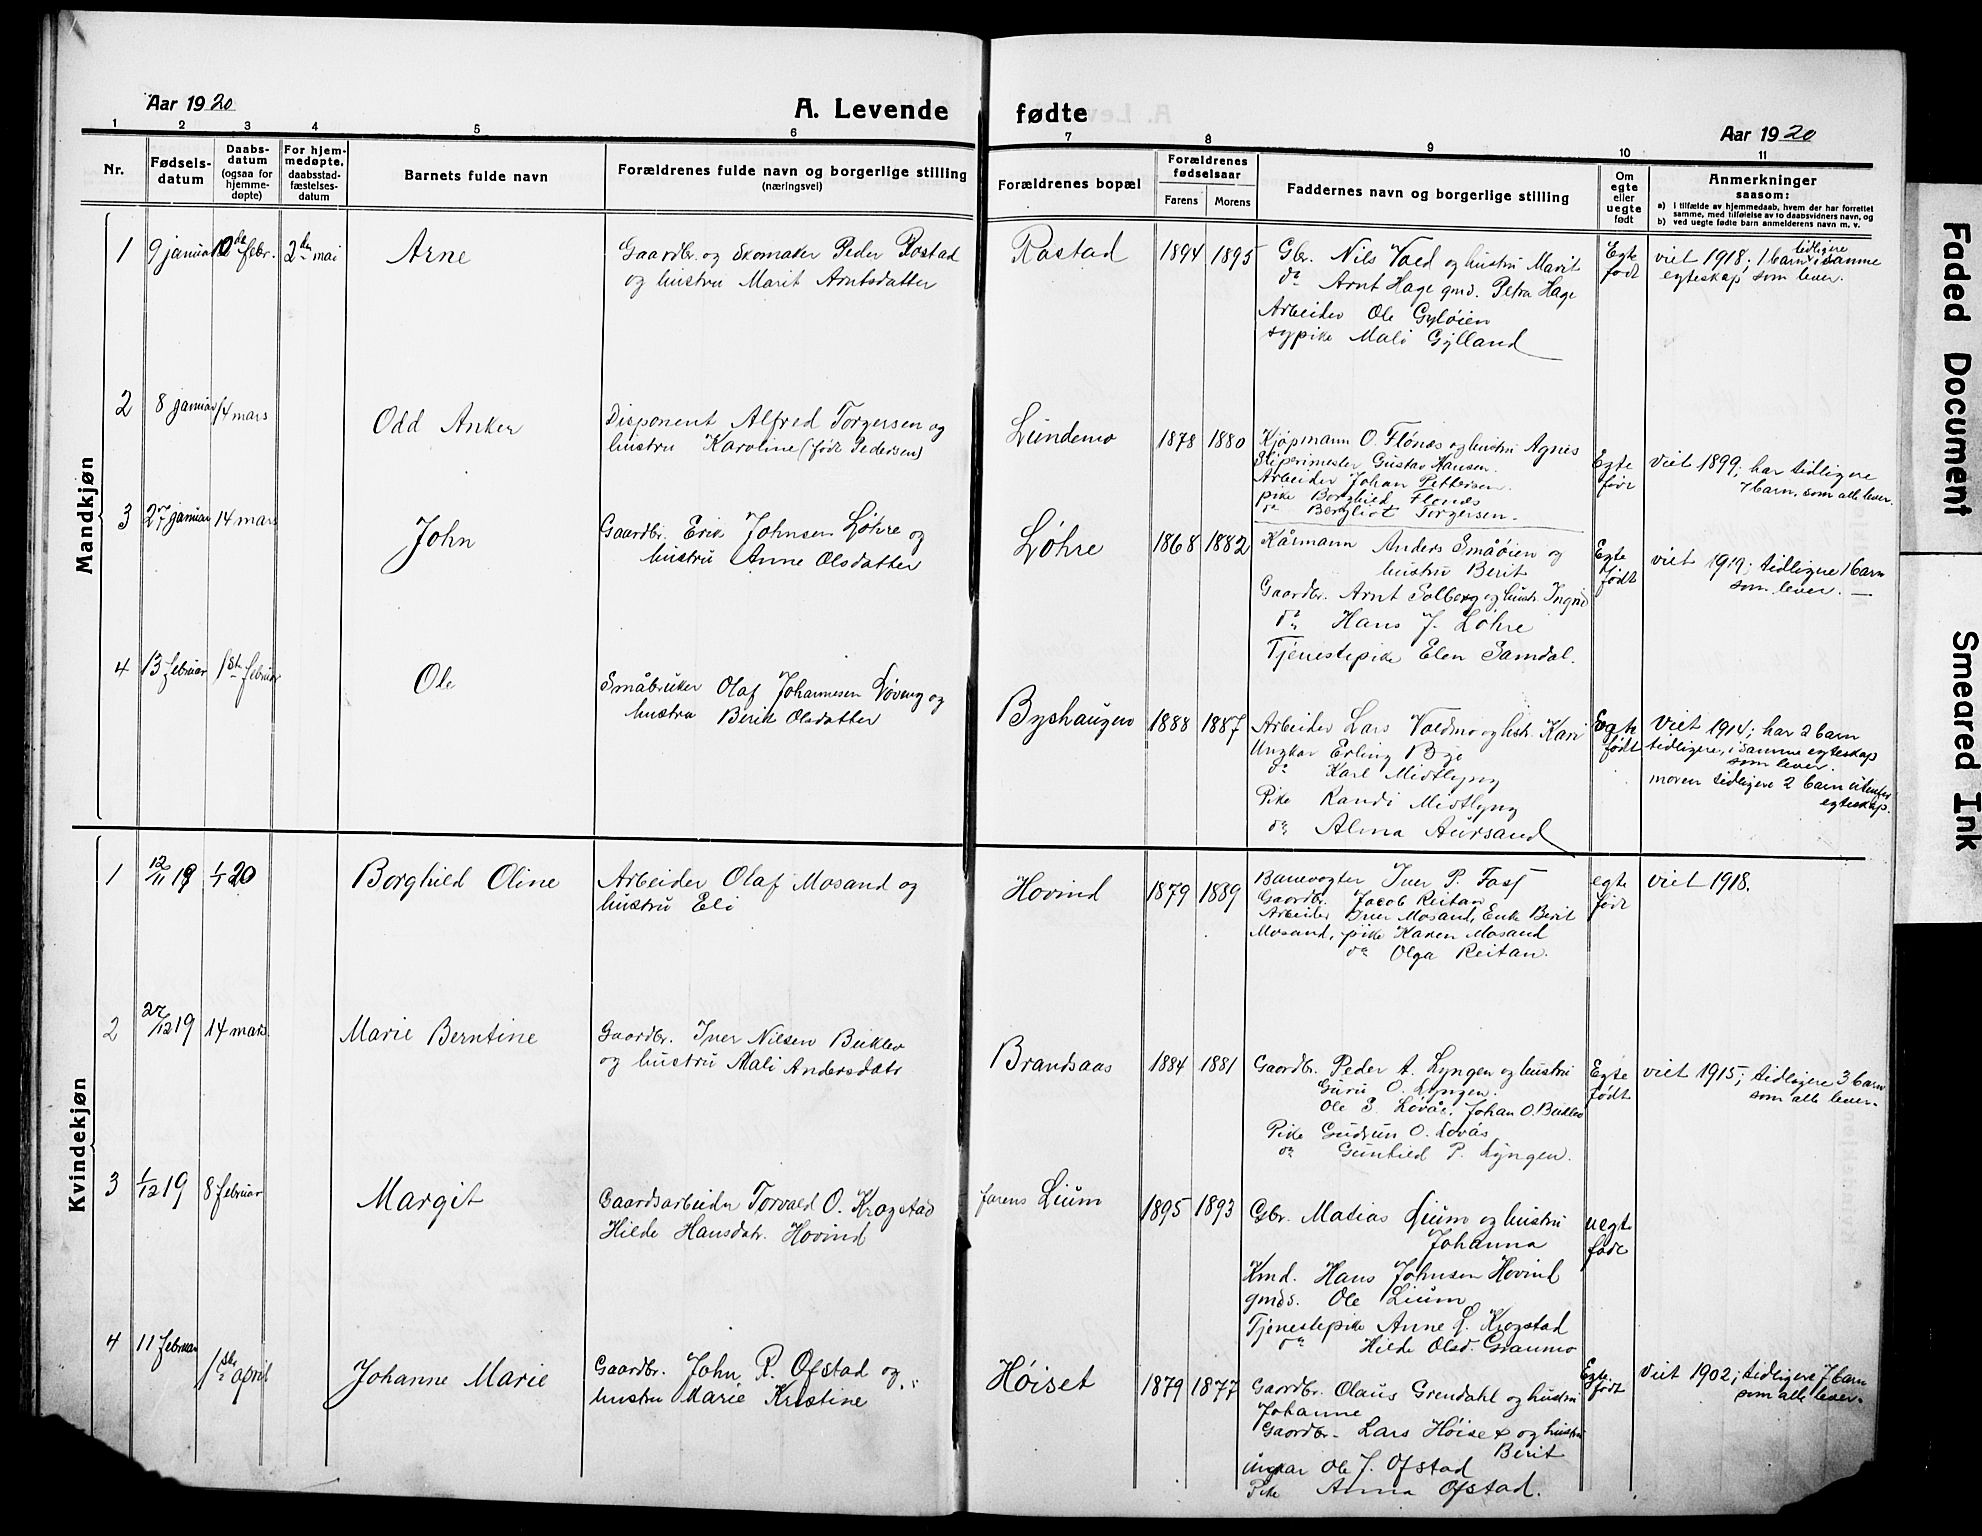 Aar 1920
A. Levende fødte
Aar 1920
1 2 3 4 5 6 7 8 9 10 11
Nr.
Fødsels-
datum
Daabs-
datum
(ogsaa for
hjemme-
døpte)
For hjem-
medøpte.
daabsstad-
fæstelses-
datum
Barnets fulde navn
Forældrenes fulde navn og borgerlige stilling
(næringsvei)
Forældrenes bopæl
Forældrenes
fødselsaar
Farens Morens
Faddernes navn og borgerlige stilling
Om
egte
eller
uegte
født
Anmerkninger
saasom:
a) i tilfælde av hjemmedaab, hvem der har forrettet
samme, med tilføielse av to daabsvidners navn, og
b) ved uegte fødte barn anmelderens navn m. v.
Mandkjøn
1 9 januar 10de febr. 2den mai
Arne
Gaardbr. og Skomaker Peder Rostad
og hustru Marit Arntsdatter
Rostad
1894 1895
Gbr. Nils Vold og hustru Marit
do Arnt Hage gmd. Petra Hage
Arbeider Ole Gyløien
sypike Mali Gylland
Egte
født
viet 1918. 1 barn tidligere i samme
egteskap, som lever.
2 8 januar 14 mars
Odd Anker
Disponent Alfred Torgersen og
hustru Karoline (født Pedersen)
Lundemo
1878 1880
Kjøpmann O. Flønes og hustru Agnes
Sliperimester Gustav Hansen.
Arbeider Johan Pettersen.
pike Borghild Flønes
do Bergliot Torgersen.
Egte
født
viet 1899; har tidligere
7 barn, som alle lever.
3 27 januar 14 mars
John
Gaardbr. Erik Johnsen Løhre og
hustru Anne Olsdatter
Løhre
1868 1882
Kårmann Anders Småøien og
hustru Berit
Gaardbr. Arnt Solberg og hustr. Ingrid
do Hans J. Løhre
Tjenestepike Elen Samdal.
Egte
født
viet 1917; tidligere 1 barn
som lever.
4 13 februar 1ste februar
Ole
Småbruker Olaf Johannesen Løvung og
hustru Berit Olsdatter
Byshaugen
1888 1887
Arbeider Lars Voldmo og hstr. Kari
Ungkar Erling Bye
do Karl Midtlyng
Pike Randi Midtlyng
do Alma Aursand
Egte
født
viet 1914; har 2 barn
tidligere, i samme egteskap
som lever.
moren tidligere 2 barn utenfor
egteskap.
Kvindekjøn
1 12/11 19 1/1 20
Borghild Oline
Arbeider Olaf Mosand og
hustru Eli
Hovind
1879 1889
Banevogter Iver P. Foss
Gaardbr. Jacob Reitan
Arbeider Iver Mosand, Enke Berit
Mosand, pike Karen Mosand
do Olga Reitan.
egte
født
viet 1918.
2 27/12 19 14 mars
Marie Berntine
Gaardbr. Iver Nilsen Beiklev
og hustru Mali Andersdatr
Brandsaas
1884 1881
Gaardbr. Peder A. Lyngen og hustru
Guru O. Lyngen.
Ole E. Løvås. Johan O. Beiklev
Pike Gudrun O. Løvås
do Gunhild P. Lyngen.
Egte
født
viet 1915; tidligere 3 barn
som alle lever.
3 1/12 19 8 februar
Margit
Gaardsarbeider Torvald O. Krogstad
Hilde Hansdatr. Hovind
farens Lium
1895 1893
Gbr. Matias Lium og hustru
Johanna
Kmd. Hans Johnsen Hovind
gmds. Ole Lium
Tjenestepike Anne O. Krogstad
do Hilde Olsd. Granmo
uegte
født
4 11 februar 1ste april
Johanne Marie
Gaardbr. John R. Ofstad og
hustru Marie Kristine
Høiset
1879 1877
Gaardbr. Olaus Grendahl og hustru
Johanne
Gaardbr. Lars Høiset og hustru
Berit
ungkar Ole J. Ofstad
Pike Anna Ofstad.
Egte
født
Viet 1902; tidligere 7 barn
som alle lever.
Faded Document
Smeared Ink